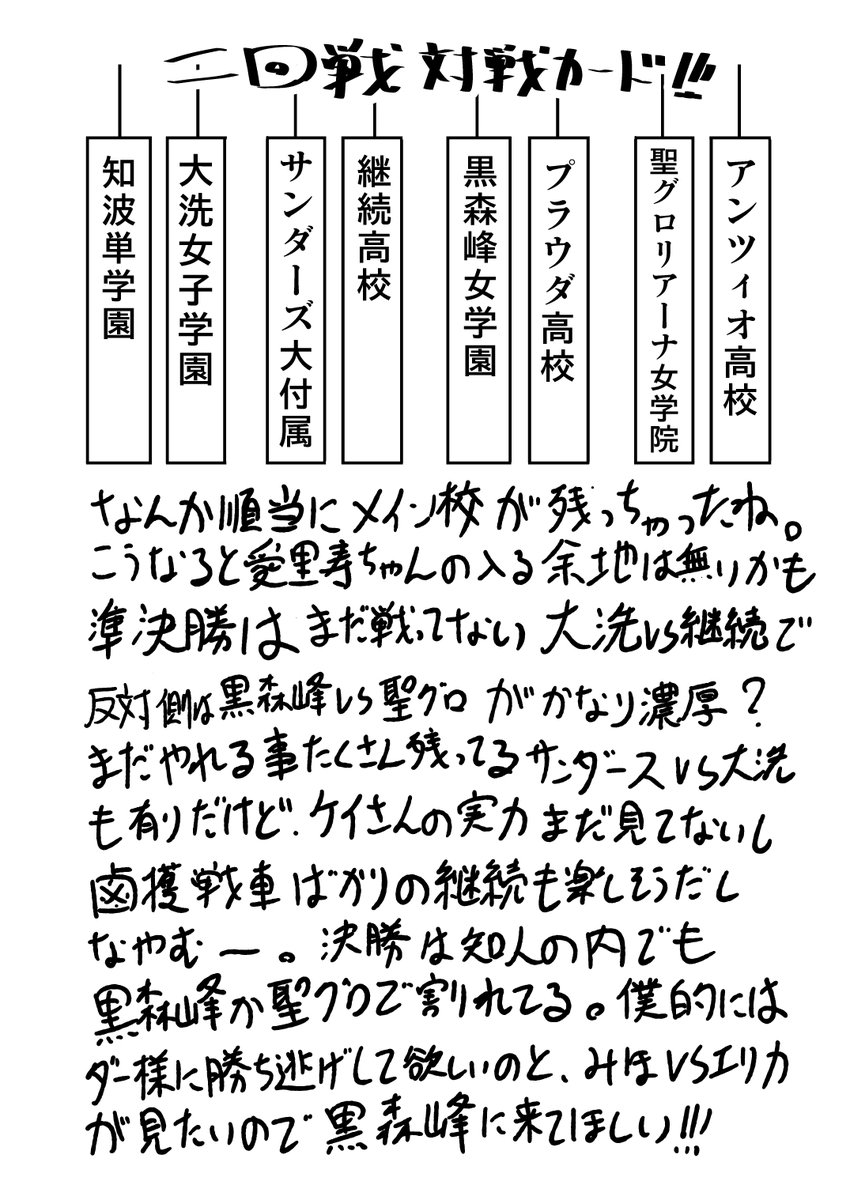 二回戦 対戦カード!!!
知波単学園
大洗女子学園
サンダーズ大付属
継続高校
黒森峰女学園
プラウダ高校
聖グロリアーナ女学院
アンツィオ高校
なんか順当にメイン校が残っちゃったね。
こうなると愛里寿ちゃんの入る余地は無りかも
準決勝はまだ戦ってない大洗vs継続で
反対側は黒森峰vs聖グロがかなり濃厚?
まだやれる事たくさん残ってるサンダースvs大洗
も有りだけど、ケイさんの実力まだ見てないし
鹵獲戦車ばかりの継続も楽しそうだし
なやむー。決勝は知人の内でも
黒森峰か聖グロで割れてる。僕的には
ダー様に勝ち逃げして欲しいのと、みほvsエリカ
が見たいので黒森峰に来てほしい!!!